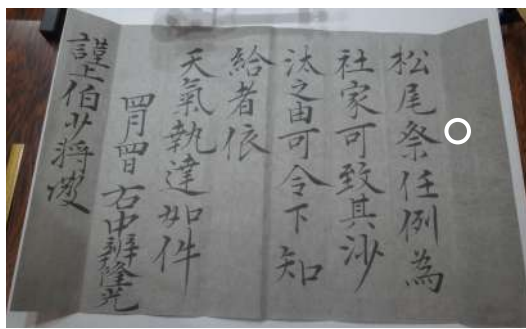 松尾祭任例為
社家可致其沙
汰之由可令下知
給者依
天氣執達如件
四月四日 右中辨隆光
謹上伯少將殿